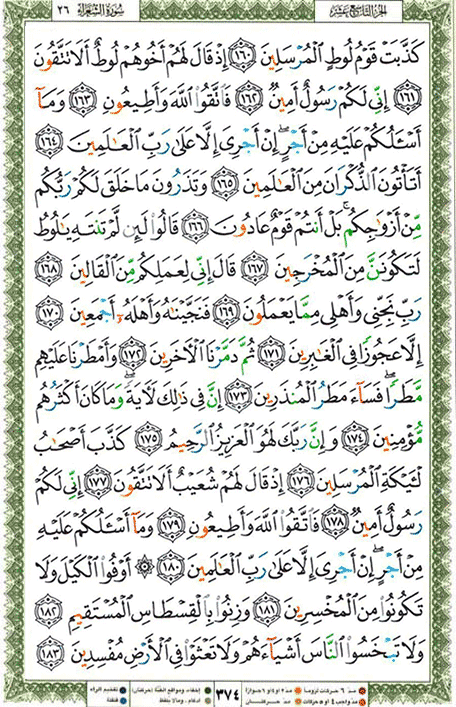 الجزء التاسع عشر سورة الشعراء ٢٦
كَذَّبَتْ قَوْمُ لُوطٍ الْمُرْسَلِينَ ١٦٠ إِذْ قَالَ لَهُمْ أَخُوهُمْ لُوطٌ أَلَا تَتَّقُونَ
١٦١ إِنِّي لَكُمْ رَسُولٌ أَمِينٌ ١٦٢ فَاتَّقُوا اللَّهَ وَأَطِيعُونِ ١٦٣ وَمَا
أَسْـَٔلُكُمْ عَلَيْهِ مِنْ أَجْرٍ ۖ إِنْ أَجْرِيَ إِلَّا عَلَىٰ رَبِّ الْعَٰلَمِينَ ١٦٤
أَتَأْتُونَ الذُّكْرَانَ مِنَ الْعَٰلَمِينَ ١٦٥ وَتَذَرُونَ مَا خَلَقَ لَكُمْ رَبُّكُم
مِّنْ أَزْوَٰجِكُم ۚ بَلْ أَنتُمْ قَوْمٌ عَادُونَ ١٦٦ قَالُوا لَئِن لَّمْ تَنتَهِ يَٰلُوطُ
لَتَكُونَنَّ مِنَ الْمُخْرَجِينَ ١٦٧ قَالَ إِنِّي لِعَمَلِكُم مِّنَ الْقَالِينَ ١٦٨
رَبِّ نَجِّنِي وَأَهْلِي مِمَّا يَعْمَلُونَ ١٦٩ فَنَجَّيْنَٰهُ وَأَهْلَهُۥ أَجْمَعِينَ ١٧٠
إِلَّا عَجُوزًا فِي الْغَٰبِرِينَ ١٧١ ثُمَّ دَمَّرْنَا الْـَٔاخَرِينَ ١٧٢ وَأَمْطَرْنَا عَلَيْهِم
مَّطَرًا ۖ فَسَآءَ مَطَرُ الْمُنذَرِينَ ١٧٣ إِنَّ فِي ذَٰلِكَ لَـَٔايَةً ۖ وَمَا كَانَ أَكْثَرُهُم
مُّؤْمِنِينَ ١٧٤ وَإِنَّ رَبَّكَ لَهُوَ الْعَزِيزُ الرَّحِيمُ ١٧٥ كَذَّبَ أَصْحَٰبُ
لْـَٔيْكَةِ الْمُرْسَلِينَ ١٧٦ إِذْ قَالَ لَهُمْ شُعَيْبٌ أَلَا تَتَّقُونَ ١٧٧ إِنِّي لَكُمْ
رَسُولٌ أَمِينٌ ١٧٨ فَاتَّقُوا اللَّهَ وَأَطِيعُونِ ١٧٩ وَمَآ أَسْـَٔلُكُمْ عَلَيْهِ
مِنْ أَجْرٍ ۖ إِنْ أَجْرِيَ إِلَّا عَلَىٰ رَبِّ الْعَٰلَمِينَ ١٨٠ ۞ أَوْفُوا الْكَيْلَ وَلَا
تَكُونُوا مِنَ الْمُخْسِرِينَ ١٨١ وَزِنُوا بِالْقِسْطَاسِ الْمُسْتَقِيمِ ١٨٢
وَلَا تَبْخَسُوا النَّاسَ أَشْيَآءَهُمْ وَلَا تَعْثَوْا فِي الْأَرْضِ مُفْسِدِينَ ١٨٣
مد ٦ حركات لزوماً مد ٢ أو ٤ أو ٦ جوازاً ٣٧٤ إخفاء، ومواقع الغنة (حركتان) تفخيم الراء
مد واجب ٤ أو ٥ حركات مد حركتان إدغام، وما لا يلفظ قلقلة